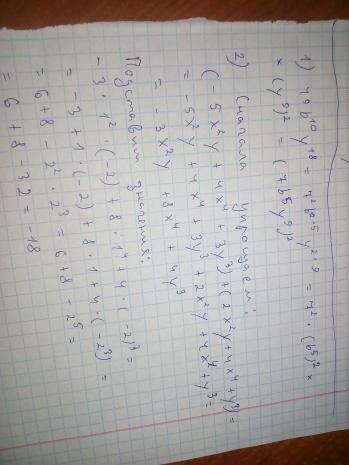 1) 49b¹⁰y¹⁸ = 7²b²·⁵y²·⁹ = 7² · (b⁵)² ×
× (y⁹)² = (7b⁵y⁹)²
2) Сначала упрощаем:
(-5x²y + 4x⁴ + 3y³) + (2x²y + 4x⁴ + y³) =
= -5x²y + 4x⁴ + 3y³ + 2x²y + 4x⁴ + y³ =
= -3x²y + 8x⁴ + 4y³
Подставим значения:
-3 · 1² · (-2) + 8 · 1⁴ + 4 · (-2)³ =
= -3 + 1 · (-2) + 8 · 1 + 4 · (-2³) =
= 6 + 8 - 2² · 2³ = 6 + 8 - 2⁵ =
= 6 + 8 - 32 = -18